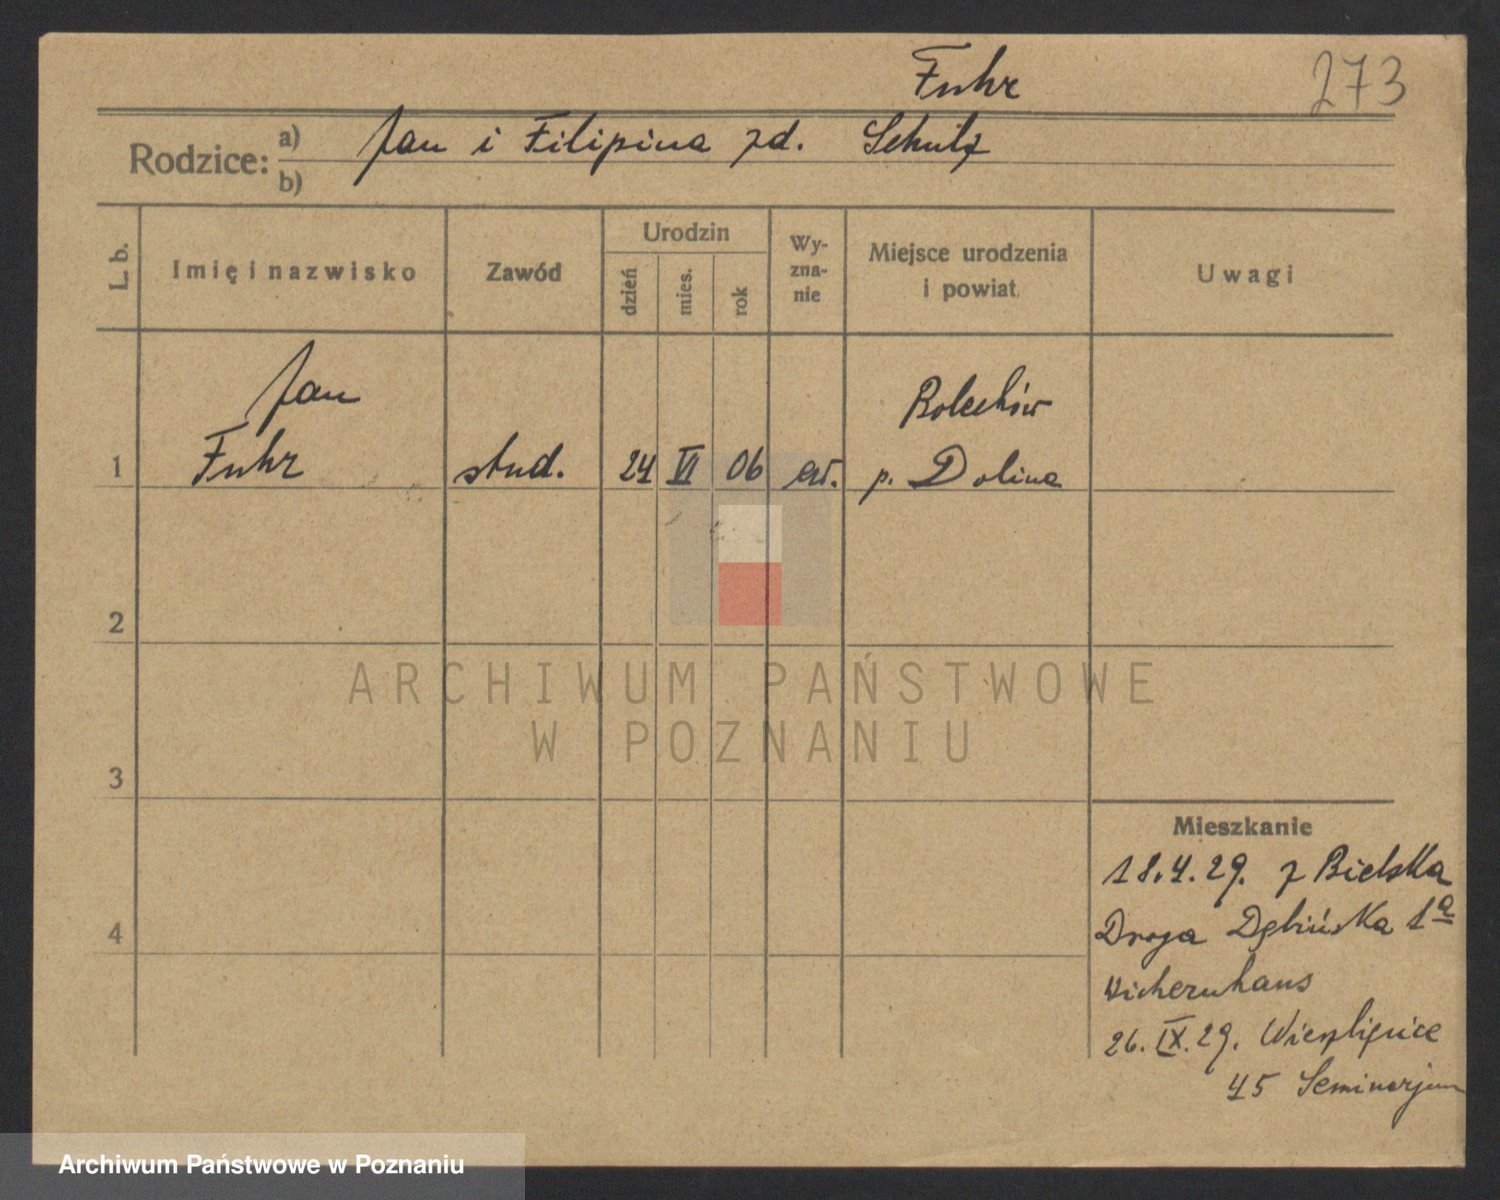 Fuhr
273
Rodzice: a) Jan i Filipina zd. Schulz
b)
L. b.
Imię i nazwisko
Zawód
Urodzin
dzień
mies.
rok
Wy-
zna-
nie
Miejsce urodzenia
i powiat
Uwagi
Jan
Bolechów
1 Fuhr stud. 24 VI 06 p. Dolina
2
3
4
ARCHIWUM PAŃSTWOWE
W POZNANIU
Mieszkanie
18.4.29. z Bielska
Droga Dębińska 1a
Wichernhaus
26. IX. 29.
45 Seminarjum
Archiwum Państwowe w Poznaniu